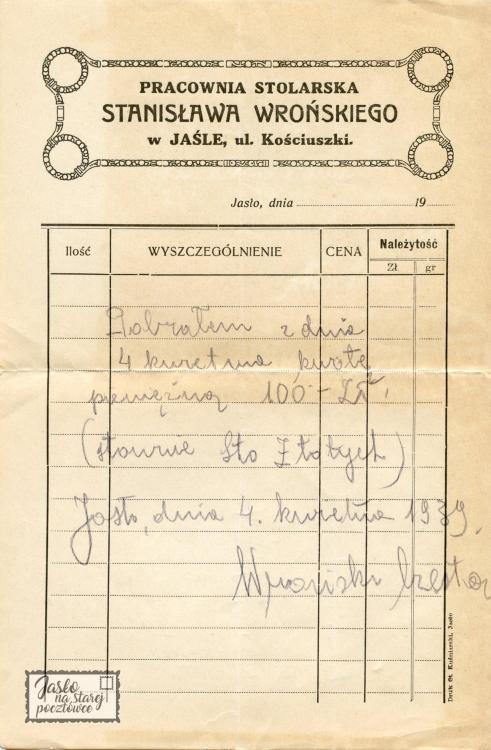 PRACOWNIA STOLARSKA
STANISŁAWA WROŃSKIEGO
w JAŚLE, ul. Kościuszki.
Jasło, dnia 19
Ilość WYSZCZEGÓLNIENIE CENA Należytość
Zł gr
z dnia
4 kwietnia
pieniężną 100 - Zł.
(słownie Sto Złotych)
Jasło, dnia 4. kwietnia 1939.
Wroński
Druk St. Kuźniarski, Jasło
Jasło
na starej
pocztówce